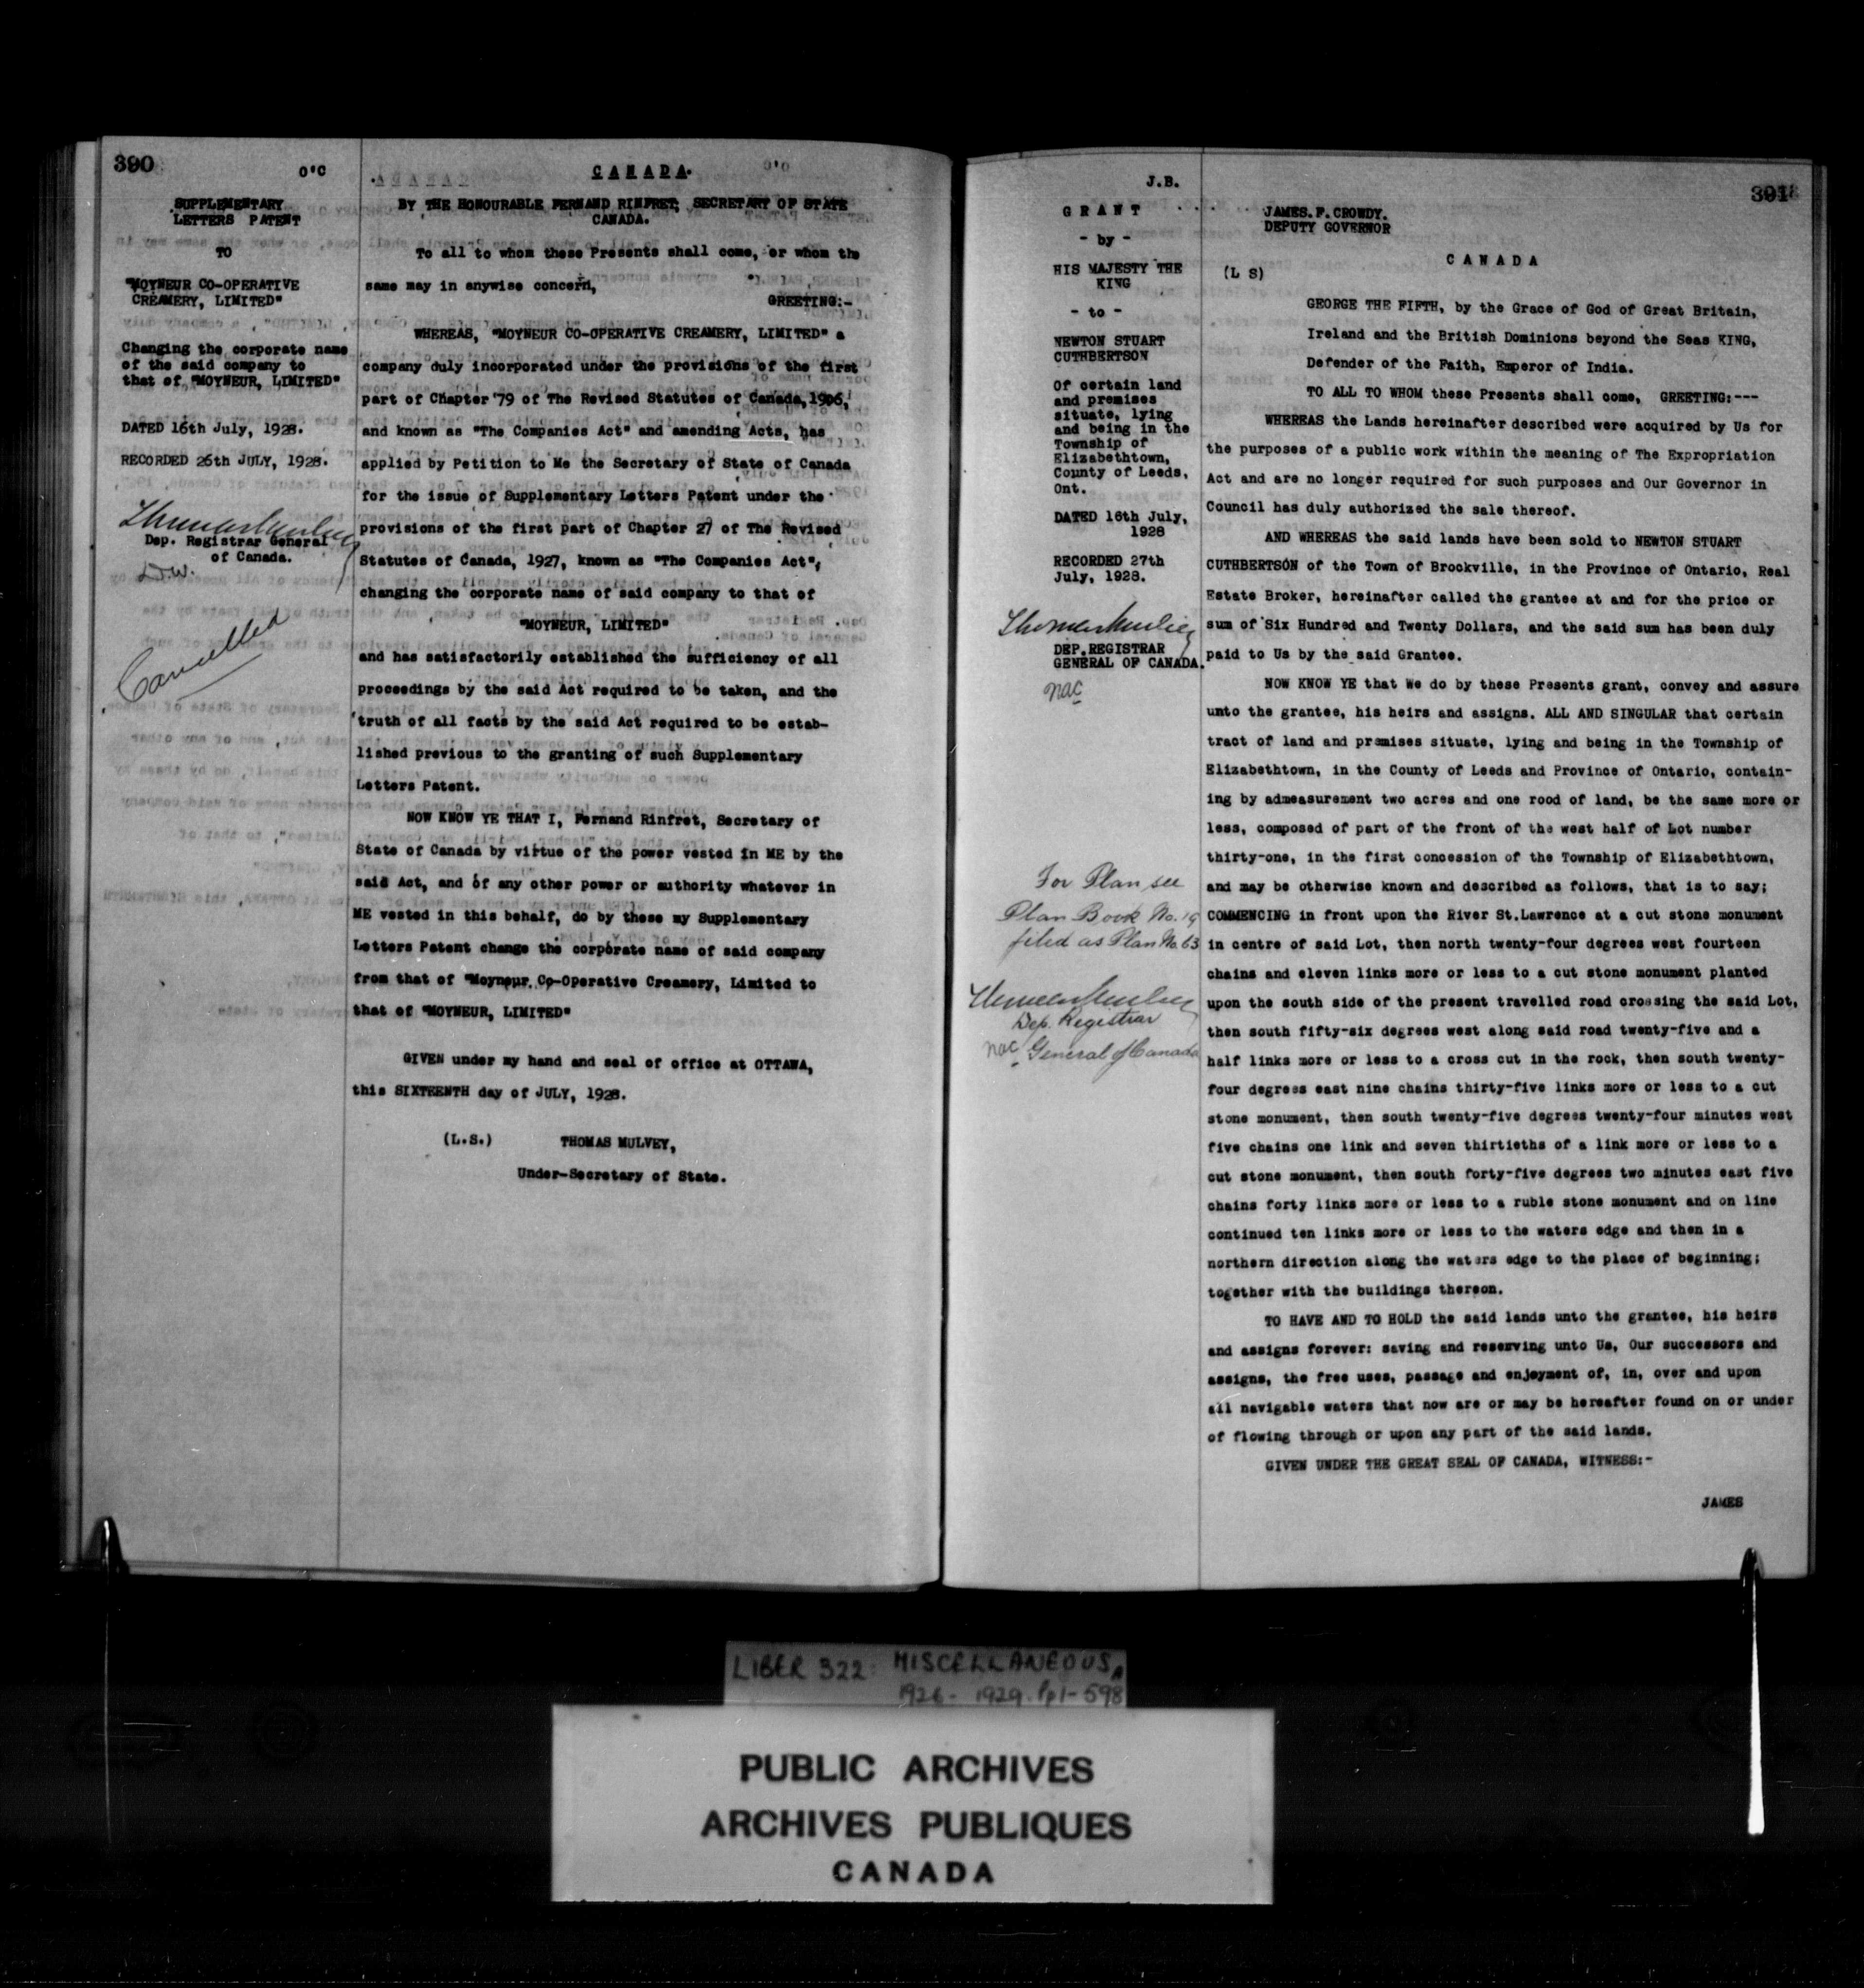 390
O'C
SUPPLEMENTARY
LETTERS PATENT
TO
"MOYNEUR CO-OPERATIVE
CREAMERY, LIMITED"
Changing the corporate name
of the said company to
that of "MOYNEUR, LIMITED"
DATED 16th July, 1928.
RECORDED 26th JULY, 1928.
Thomas Mulvey
Dep. Registrar General
of Canada.
Cancelled
CANADA.
BY THE HONOURABLE FERNAND RINFRET, SECRETARY OF STATE
CANADA.
To all to whom these Presents shall come, or whom the
same may in anywise concern,
GREETING:-
WHEREAS, "MOYNEUR CO-OPERATIVE CREAMERY, LIMITED" a
company duly incorporated under the provisions of the first
part of Chapter 79 of The Revised Statutes of Canada, 1906,
and known as "The Companies Act" and amending Acts, has
applied by Petition to Me the Secretary of State of Canada
for the issue of Supplementary Letters Patent under the
provisions of the first part of Chapter 27 of The Revised
Statutes of Canada, 1927, known as "The Companies Act",
changing the corporate name of said company to that of
"MOYNEUR, LIMITED"
and has satisfactorily established the sufficiency of all
proceedings by the said Act required to be taken, and the
truth of all facts by the said Act required to be estab-
lished previous to the granting of such Supplementary
Letters Patent.
NOW KNOW YE THAT I, Fernand Rinfret, Secretary of
State of Canada by virtue of the power vested in ME by the
said Act, and of any other power or authority whatever in
ME vested in this behalf, do by these my Supplementary
Letters Patent change the corporate name of said company
from that of "Moyneur Co-Operative Creamery, Limited to
that of "MOYNEUR, LIMITED"
GIVEN under my hand and seal of office at OTTAWA,
this SIXTEENTH day of JULY, 1928.
(L.S.) THOMAS MULVEY,
Under-Secretary of State.
391
J.B.
GRANT
- by -
HIS MAJESTY THE
KING
- to -
NEWTON STUART
CUTHBERTSON
Of certain land
and premises
situate, lying
and being in the
Township of
Elizabethtown,
County of Leeds,
Ont.
DATED 16th July,
1928
RECORDED 27th
July, 1928.
Thomas Mulvey
DEP. REGISTRAR
GENERAL OF CANADA.
nac
For Plan see
Plan Book No. 19
filed as Plan No. 63
Thomas Mulvey
Dep. Registrar
nac General of Canada
JAMES. F. CROWDY.
DEPUTY GOVERNOR
CANADA
(L S)
GEORGE THE FIFTH, by the Grace of God of Great Britain,
Ireland and the British Dominions beyond the Seas KING,
Defender of the Faith, Emperor of India.
TO ALL TO WHOM these Presents shall come, GREETING:---
WHEREAS the Lands hereinafter described were acquired by Us for
the purposes of a public work within the meaning of The Expropriation
Act and are no longer required for such purposes and Our Governor in
Council has duly authorized the sale thereof.
AND WHEREAS the said lands have been sold to NEWTON STUART
CUTHBERTSON of the Town of Brockville, in the Province of Ontario, Real
Estate Broker, hereinafter called the grantee at and for the price or
sum of Six Hundred and Twenty Dollars, and the said sum has been duly
paid to Us by the said Grantee.
NOW KNOW YE that We do by these Presents grant, convey and assure
unto the grantee, his heirs and assigns. ALL AND SINGULAR that certain
tract of land and premises situate, lying and being in the Township of
Elizabethtown, in the County of Leeds and Province of Ontario, contain-
ing by admeasurement two acres and one rood of land, be the same more or
less, composed of part of the front of the west half of Lot number
thirty-one, in the first concession of the Township of Elizabethtown,
and may be otherwise known and described as follows, that is to say;
COMMENCING in front upon the River St.Lawrence at a cut stone monument
in centre of said Lot, then north twenty-four degrees west fourteen
chains and eleven links more or less to a cut stone monument planted
upon the south side of the present travelled road crossing the said Lot,
then south fifty-six degrees west along said road twenty-five and a
half links more or less to a cross cut in the rock, then south twenty-
four degrees east nine chains thirty-five links more or less to a cut
stone monument, then south twenty-five degrees twenty-four minutes west
five chains one link and seven thirtieths of a link more or less to a
cut stone monument, then south forty-five degrees two minutes east five
chains forty links more or less to a ruble stone monument and on line
continued ten links more or less to the waters edge and then in a
northern direction along the waters edge to the place of beginning;
together with the buildings thereon.
TO HAVE AND TO HOLD the said lands unto the grantee, his heirs
and assigns forever: saving and reserving unto Us, Our successors and
assigns, the free uses, passage and enjoyment of, in, over and upon
all navigable waters that now are or may be hereafter found on or under
of flowing through or upon any part of the said lands.
GIVEN UNDER THE GREAT SEAL OF CANADA, WITNESS:-
JAMES
LIBER 322: MISCELLANEOUS,
1926 - 1929. Pp 1-598
PUBLIC ARCHIVES
ARCHIVES PUBLIQUES
CANADA